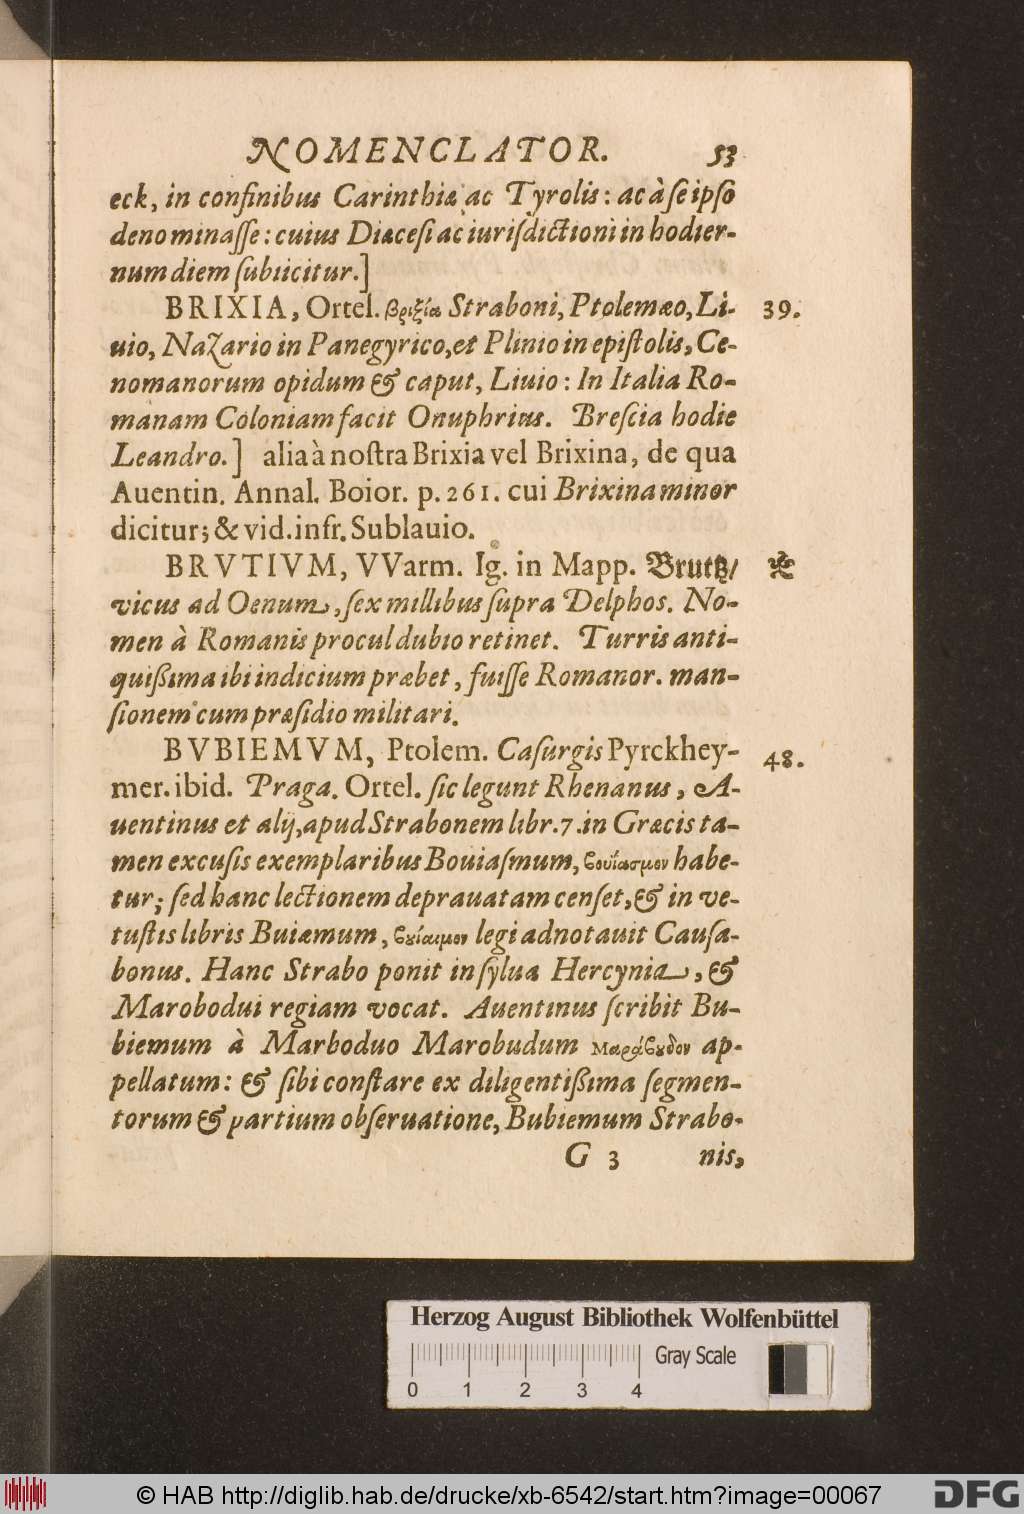 NOMENCLATOR. 53
eck, in confinibus Carinthiæ ac Tyrolis: ac à ſe ipſo
denominaſſe: cuius Diæceſi ac iuriſdictioni in hodier-
num diem ſubiicitur.]
BRIXIA, Ortel. βριξία Straboni, Ptolemæo, Li- 39.
uio, Nazario in Panegyrico, et Plinio in epiſtolis, Ce-
nomanorum opidum & caput, Liuio: In Italia Ro-
manam Coloniam facit Onuphrius. Breſcia hodie
Leandro.] alia à noſtra Brixia vel Brixina, de qua
Auentin. Annal. Boior. p. 261. cui Brixina minor
dicitur; & vid. infr. Sublauio.
BRVTIVM, VVarm. Ig. in Mapp. Brutz/
vicus ad Oenum, ſex millibus ſupra Delphos. No-
men à Romanis procul dubio retinet. Turris anti-
quißima ibi indicium præbet, fuiſſe Romanor. man-
ſionem cum præſidio militari.
BVBIEMVM, Ptolem. Caſurgis Pyrckhey- 48.
mer. ibid. Praga. Ortel. ſic legunt Rhenanus, A-
uentinus et alij, apud Strabonem libr. 7. in Græcis ta-
men excuſis exemplaribus Bouiaſmum, βουίασμον habe-
tur; ſed hanc lectionem deprauatam cenſet, & in ve-
tuſtis libris Buiæmum, βουίαιμον legi adnotauit Cauſa-
bonus. Hanc Strabo ponit in ſylua Hercynia, &
Marobodui regiam vocat. Auentinus ſcribit Bu-
biemum à Marboduo Marobudum Μαρόβουδον ap-
pellatum: & ſibi conſtare ex diligentißima ſegmen-
torum & partium obſeruatione, Bubiemum Strabo-
G 3 nis,
Herzog August Bibliothek Wolfenbüttel
Gray Scale
0 1 2 3 4
© HAB http://diglib.hab.de/drucke/xb-6542/start.htm?image=00067
DFG